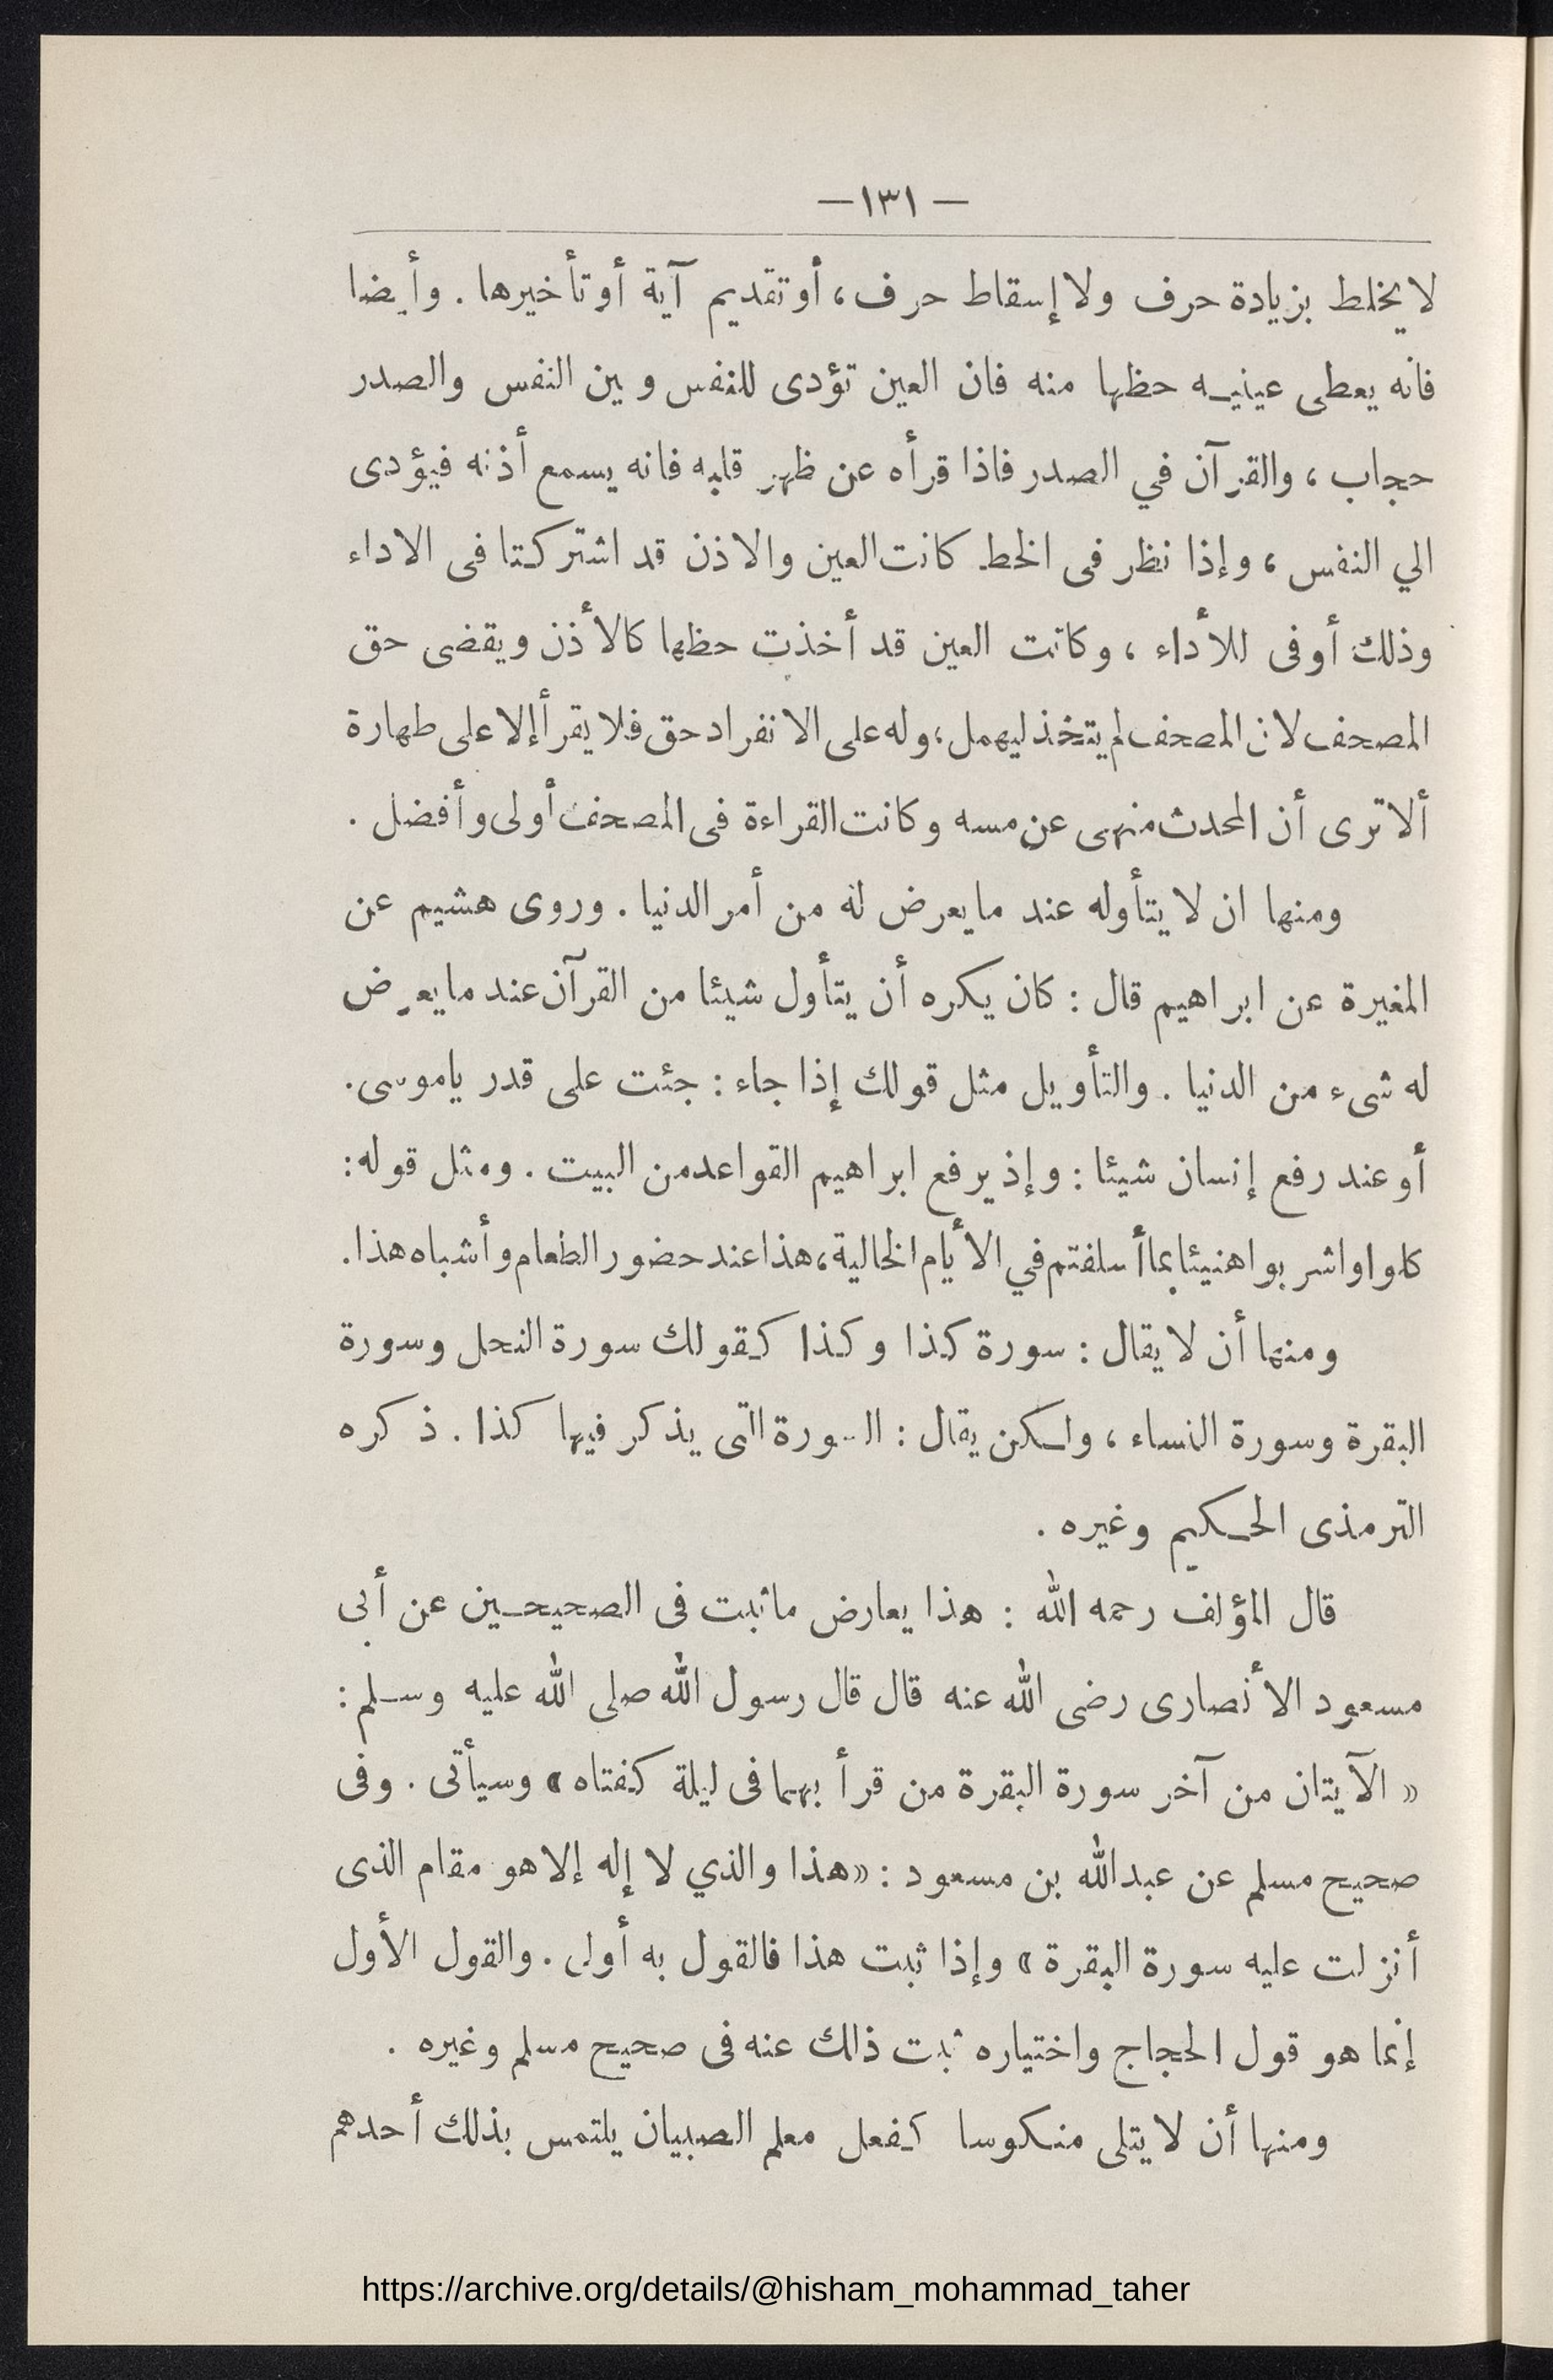 — ١٣١ —
لا يخلط بزيادة حرف ولا إسقاط حرف، أو تقديم آية أو تأخيرها . وأيضا
فانه يعطى عينيه حظها منه فان العين تؤدى للنفس وبين النفس والصدر
حجاب ، والقرآن في الصدر فاذا قرأه عن ظهر قلبه فانه يسمع أذنه فيؤدى
الي النفس ، وإذا نظر فى الخط كانت العين والاذن قد اشتركتا فى الاداء
وذلك أوفى للأداء ، وكانت العين قد أخذت حظها كالأذن ويقضى حق
المصحف لان المصحف لم يتخذ ليهمل، وله على الانفراد حق فلا يقرأ إلا على طهارة
ألا ترى أن المحدث منهى عن مسه وكانت القراءة فى المصحف أولى وأفضل .
ومنها ان لا يتأوله عند ما يعرض له من أمر الدنيا . وروى هشيم عن
المغيرة عن ابراهيم قال : كان يكره أن يتأول شيئا من القرآن عند ما يعرض
له شىء من الدنيا . والتأويل مثل قولك إذا جاء : جئت على قدر ياموسى .
أو عند رفع إنسان شيئا : وإذ يرفع ابراهيم القواعد من البيت . ومثل قوله :
كلوا واشربوا هنيئا بما أسلفتم في الأيام الخالية، هذا عند حضور الطعام وأشباه هذا .
ومنها أن لا يقال : سورة كذا وكذا كقولك سورة النحل وسورة
البقرة وسورة النساء ، ولكن يقال : السورة التى يذكر فيها كذا . ذكره
الترمذى الحكيم وغيره .
قال المؤلف رحمه الله : هذا يعارض ما ثبت فى الصحيحين عن أبى
مسعود الأنصارى رضى الله عنه قال قال رسول الله صلى الله عليه وسلم :
« الآيتان من آخر سورة البقرة من قرأ بهما فى ليلة كفتاه » وسيأتى . وفى
صحيح مسلم عن عبدالله بن مسعود : «هذا والذي لا إله إلا هو مقام الذى
أنزلت عليه سورة البقرة » وإذا ثبت هذا فالقول به أولى . والقول الأول
إنما هو قول الحجاج واختياره ثبت ذلك عنه فى صحيح مسلم وغيره .
ومنها أن لا يتلى منكوسا كفعل معلم الصبيان يلتمس بذلك أحدهم
https://archive.org/details/@hisham_mohammad_taher